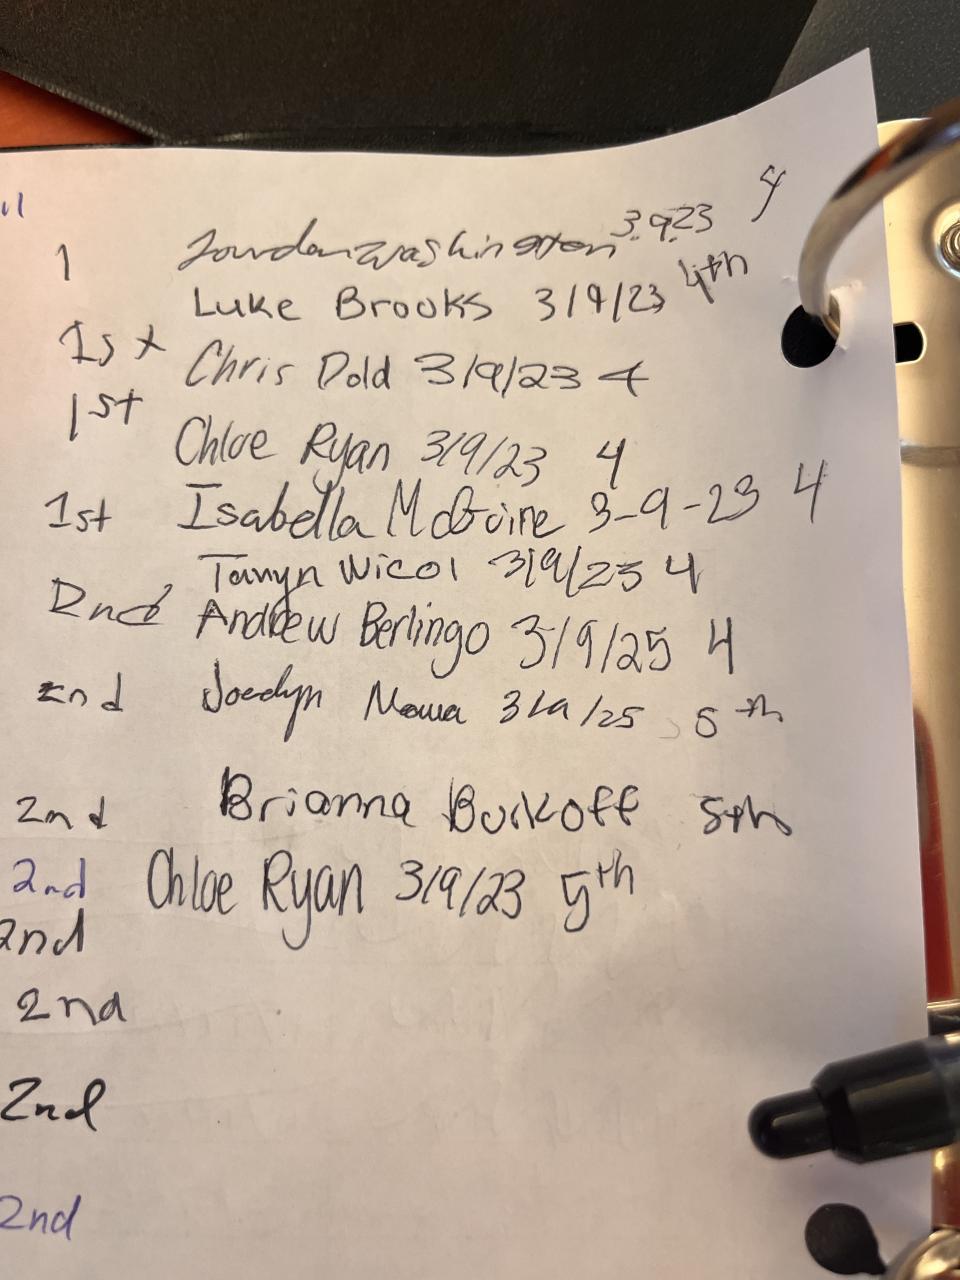 1 Jourdan Washington 3.9.23 4
Luke Brooks 3/9/23 4th
1st Chris Dold 3/9/23 4
1st
Chloe Ryan 3/9/23 4
1st Isabella McGuire 3-9-23 4
Tanyn Nicol 3/9/23 4
2nd Andrew Berlingo 3/9/25 4
2nd Jocelyn 3/9/25 5th
2nd Brianna Burkoff 5th
2nd Chloe Ryan 3/9/23 5th
2nd
2nd
2nd
2nd